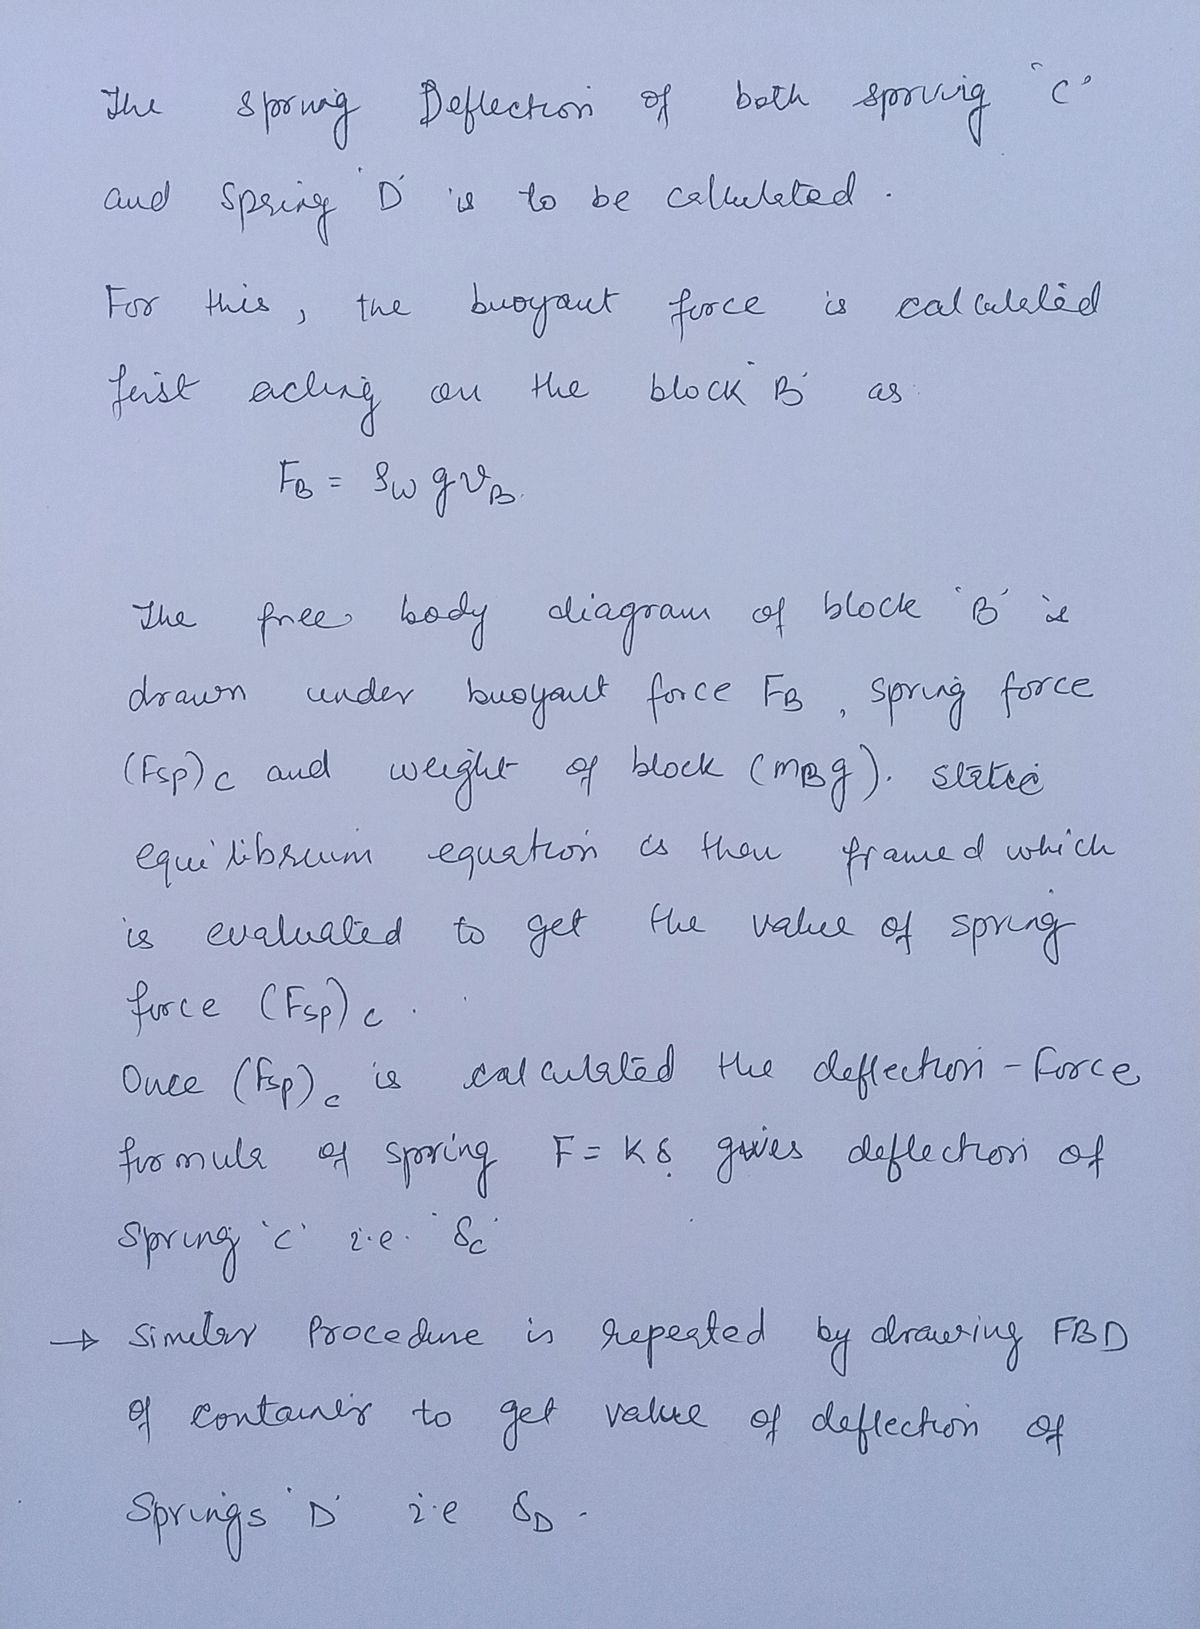 The spring Deflection of both spring 'C'
and spring 'D' is to be calculated.
For this, the buoyant force is calculated
first acting on the block 'B' as
F_B = ρ_w g V_B.
The free body diagram of block 'B' is
drawn under buoyant force F_B, spring force
(Fsp)_C and weight of block (m_B g). Static
equilibrium equation is then framed which
is evaluated to get the value of spring
force (Fsp)_C.
Once (Fsp)_C is calculated the deflection - Force
formula of spring F = Kδ gives deflection of
Spring 'C' i.e. 'δ_C'
→ Similar Procedure is repeated by drawing FBD
of container to get value of deflection of
Springs 'D' i.e δ_D.